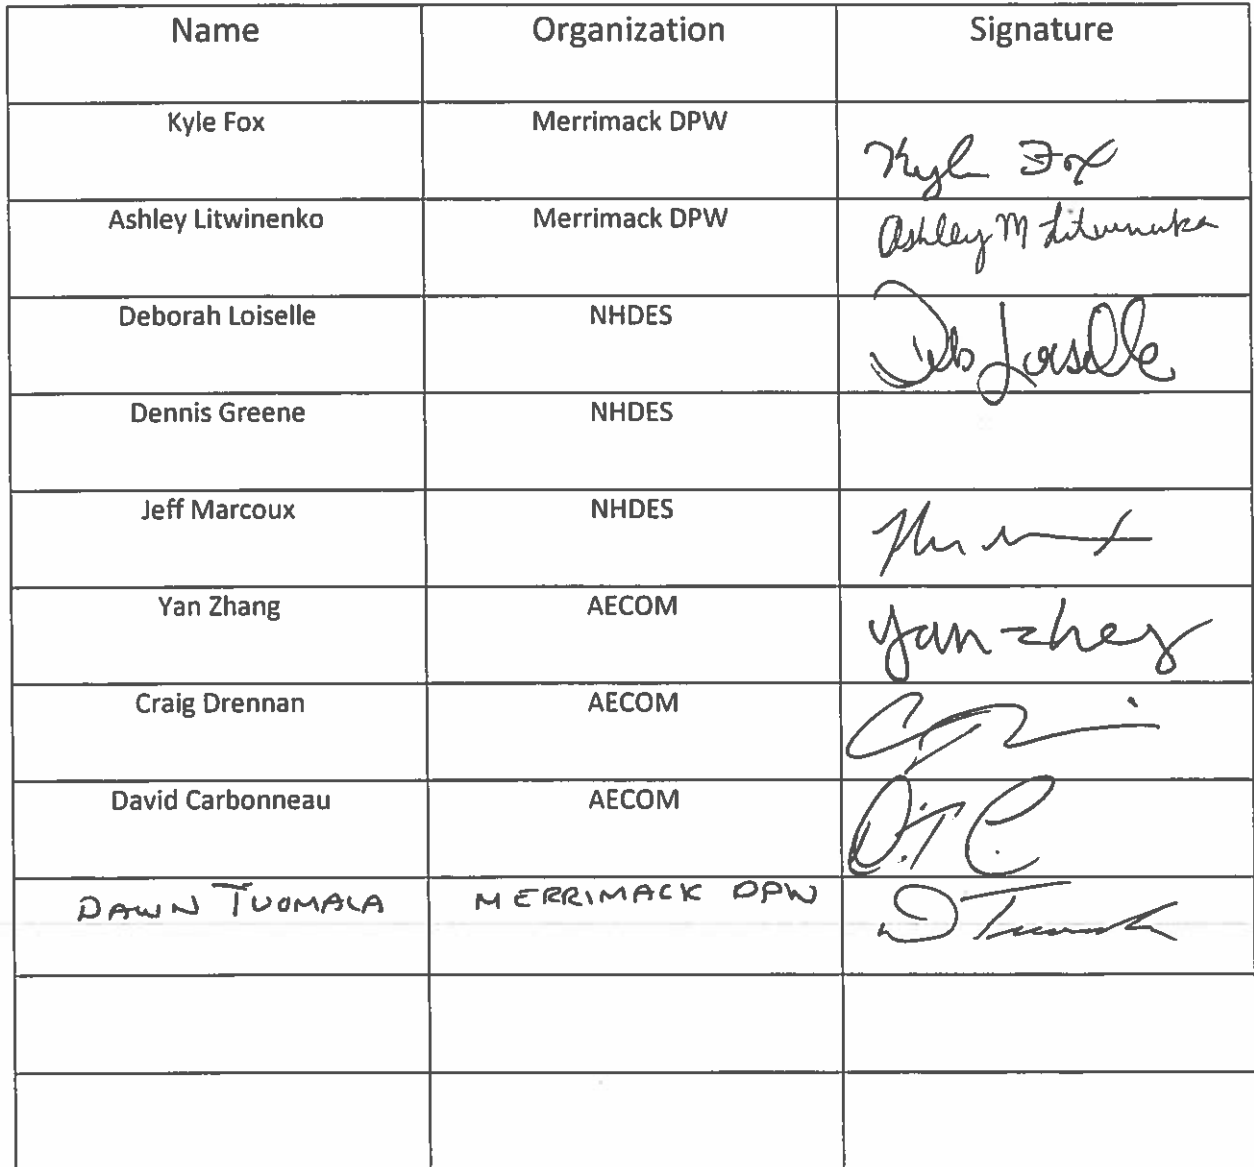 Name Organization Signature
Kyle Fox Merrimack DPW Kyle Fox
Ashley Litwinenko Merrimack DPW Ashley M Litwinenko
Deborah Loiselle NHDES Deb Loiselle
Dennis Greene NHDES
Jeff Marcoux NHDES
Yan Zhang AECOM Yan Zhang
Craig Drennan AECOM
David Carbonneau AECOM D.T.C.
DAWN TUOMALA MERRIMACK DPW D Tuomala